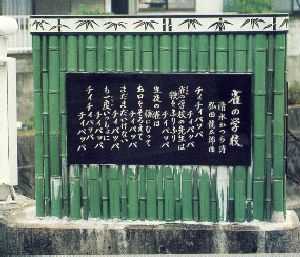 雀の学校
清水かつら 詩
弘田龍太郎 曲
チイチイパッパ
チイパッパ
雀の学校の先生は
むちを振り振り
チイパッパ
生徒の雀は
輪になって
お口をそろえて
チイパッパ
まだまだいけない
チイパッパ
も一度一しょに
チイパッパ
チイチイパッパ
チイパッパ